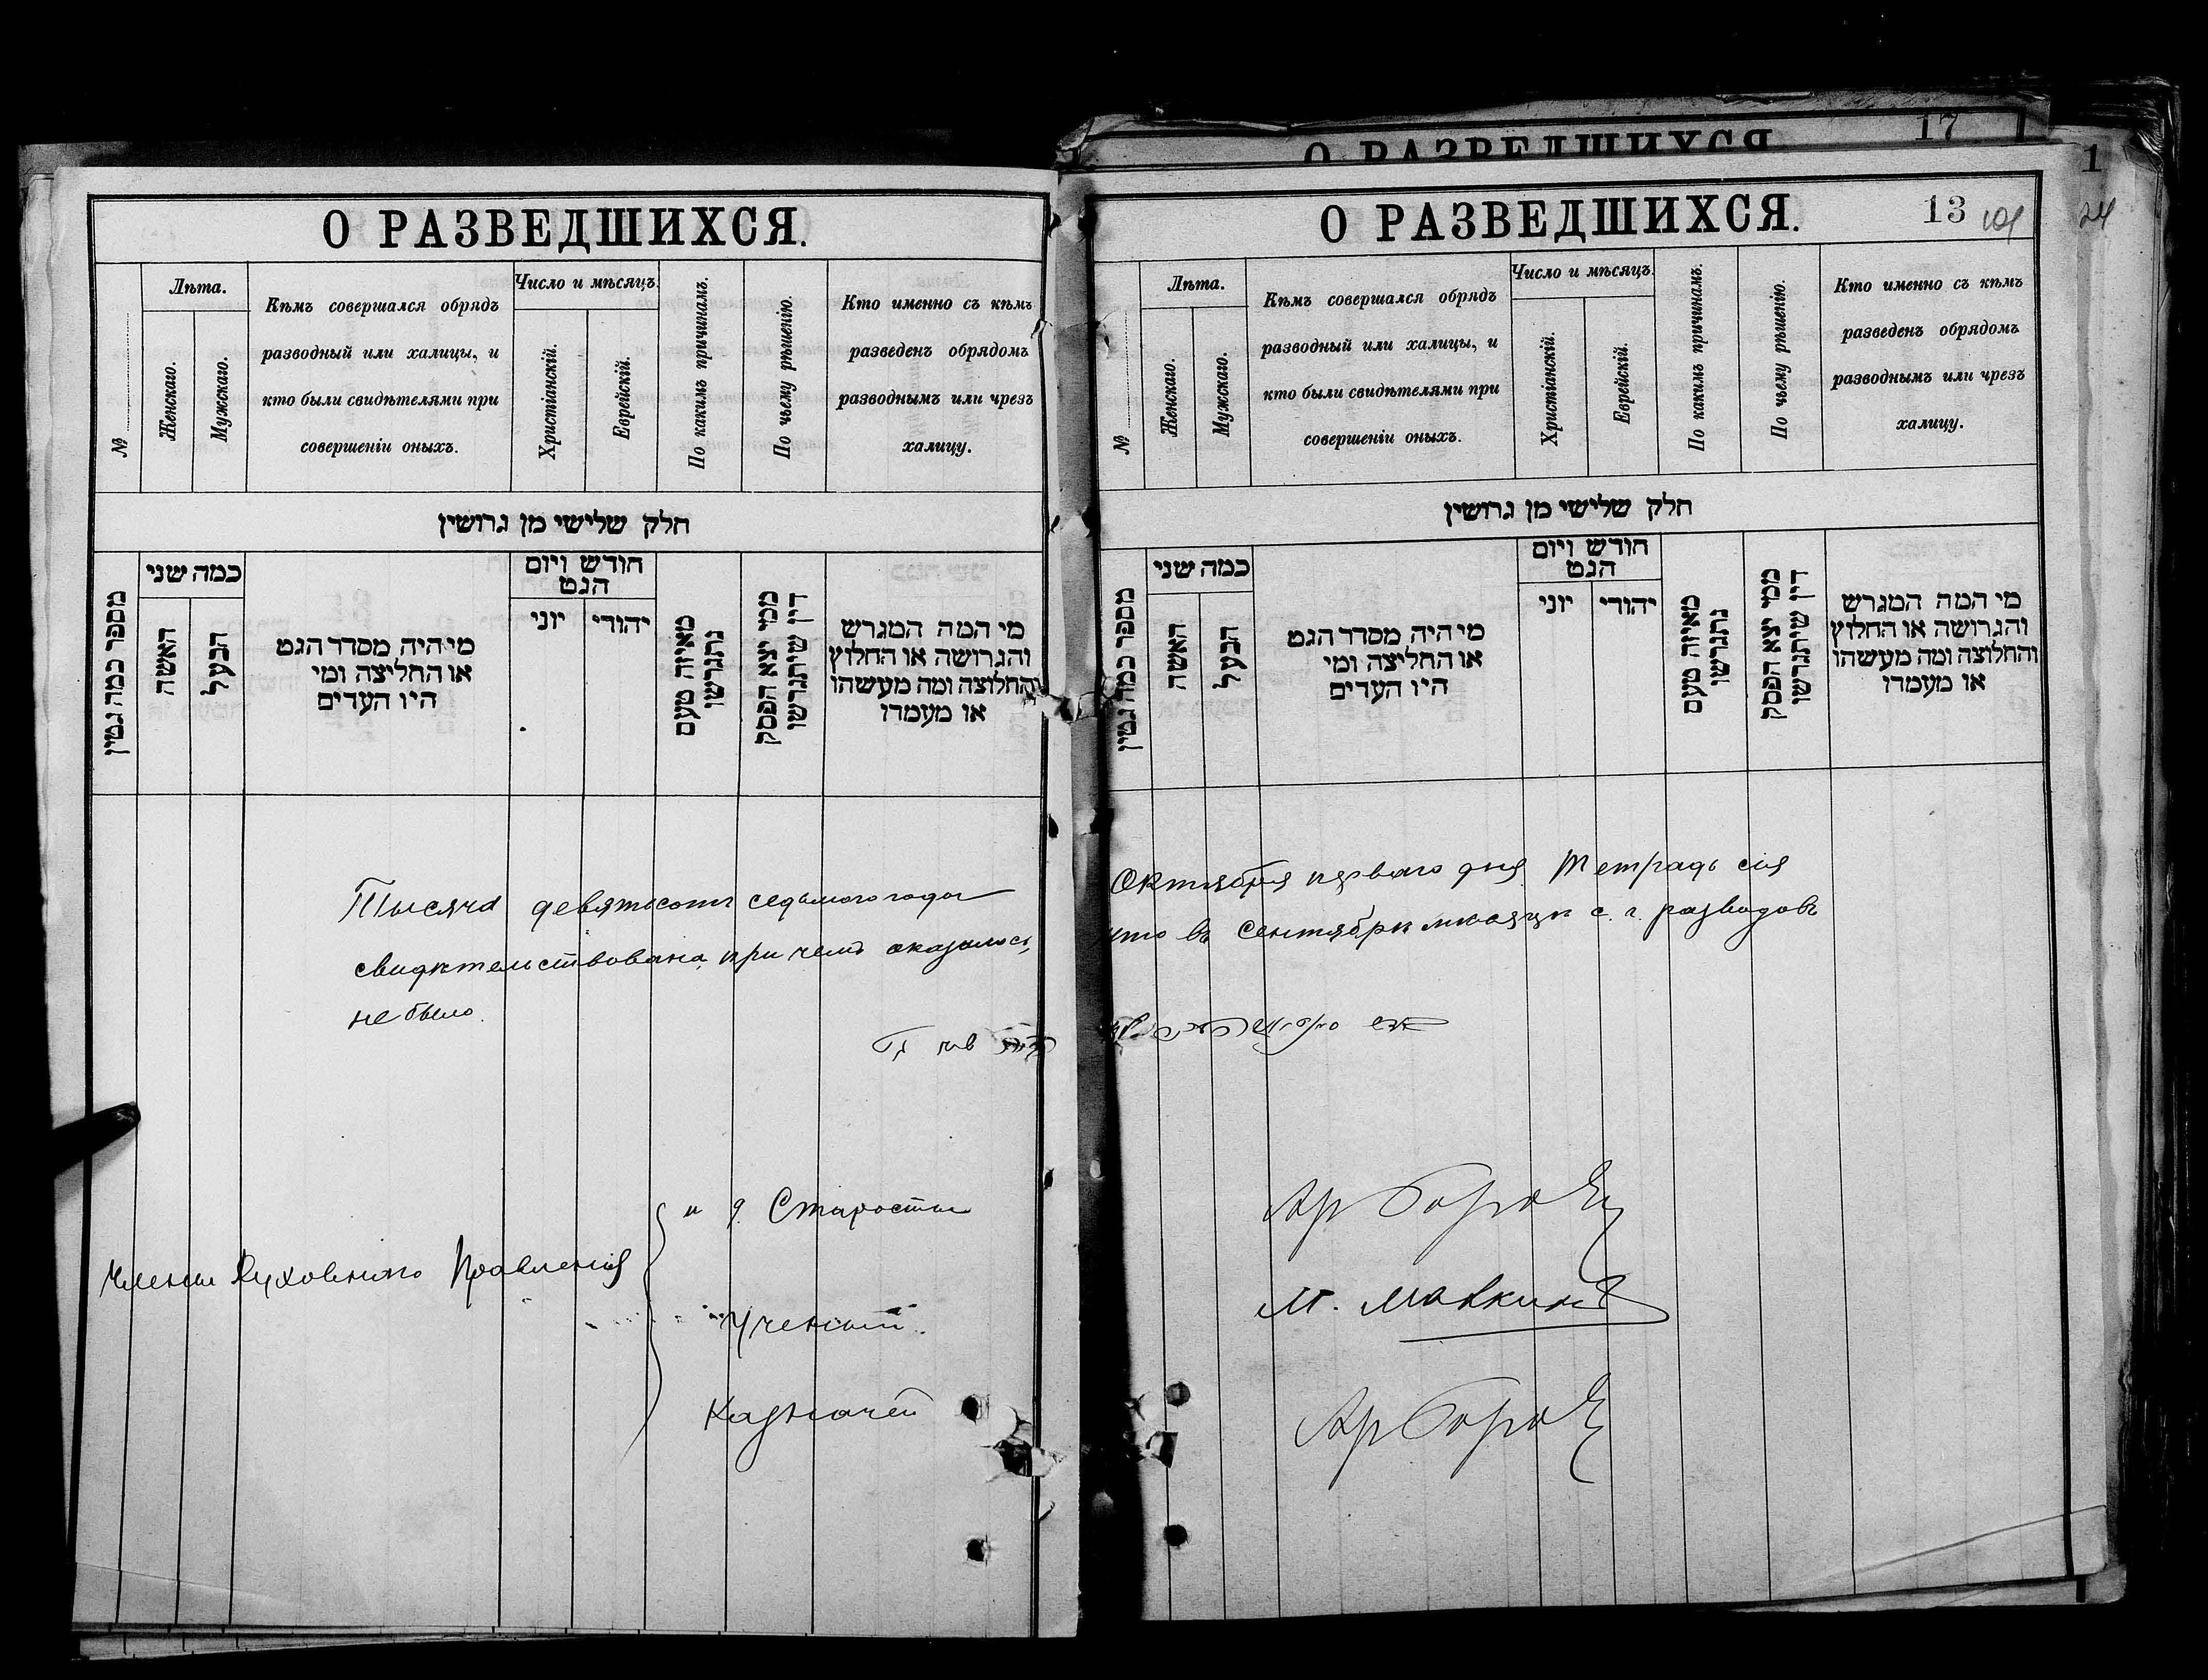 О РАЗВЕДШИХСЯ.
№
Лѣта.
Женскаго.
Мужскаго.
Кѣмъ совершался обрядъ
разводный или халицы, и
кто были свидѣтелями при
совершеніи оныхъ.
Число и мѣсяцъ.
Христіанскій.
Еврейскій.
По какимъ причинамъ.
По чьему рѣшенію.
Кто именно съ кѣмъ
разведенъ обрядомъ
разводнымъ или чрезъ
халицу.
חלק שלישי מן גרושין
מספר כמה גטין
כמה שני
האשה
הבעל
מי היה מסדר הגט
או החליצה ומי
היו העדים
חודש ויום
הגט
יוני
יהודי
מאיזה טעם
נתגרשו
ממי יצא הפסק
דין שיתגרשו
מי המה המגרש
והגרושה או החלוץ
והחלוצה ומה מעשהו
או מעמדו
Тысяча девятьсотъ седьмого года
свидѣтельствована, при чемъ оказалось,
не было.
Члены Духовнаго Правленія
и д. Старосты
Ученый
Казначей
О РАЗВЕДШИХСЯ
17
1
24
О РАЗВЕДШИХСЯ.
13
№
Лѣта.
Женскаго.
Мужскаго.
Кѣмъ совершался обрядъ
разводный или халицы, и
кто были свидѣтелями при
совершеніи оныхъ.
Число и мѣсяцъ.
Христіанскій.
Еврейскій.
По какимъ причинамъ.
По чьему рѣшенію.
Кто именно съ кѣмъ
разведенъ обрядомъ
разводнымъ или чрезъ
халицу.
חלק שלישי מן גרושין
מספר כמה גטין
כמה שני
האשה
הבעל
מי היה מסדר הגט
או החליצה ומי
היו העדים
חודש ויום
הגט
יוני
יהודי
מאיזה טעם
נתגרשו
ממי יצא הפסק
דין שיתגרשו
מי המה המגרש
והגרושה או החלוץ
והחלוצה ומה מעשהו
או מעמדו
Октября перваго дня. Тетрадь сія
что въ Сентябрѣ мѣсяцѣ с. г. разводовъ
М.